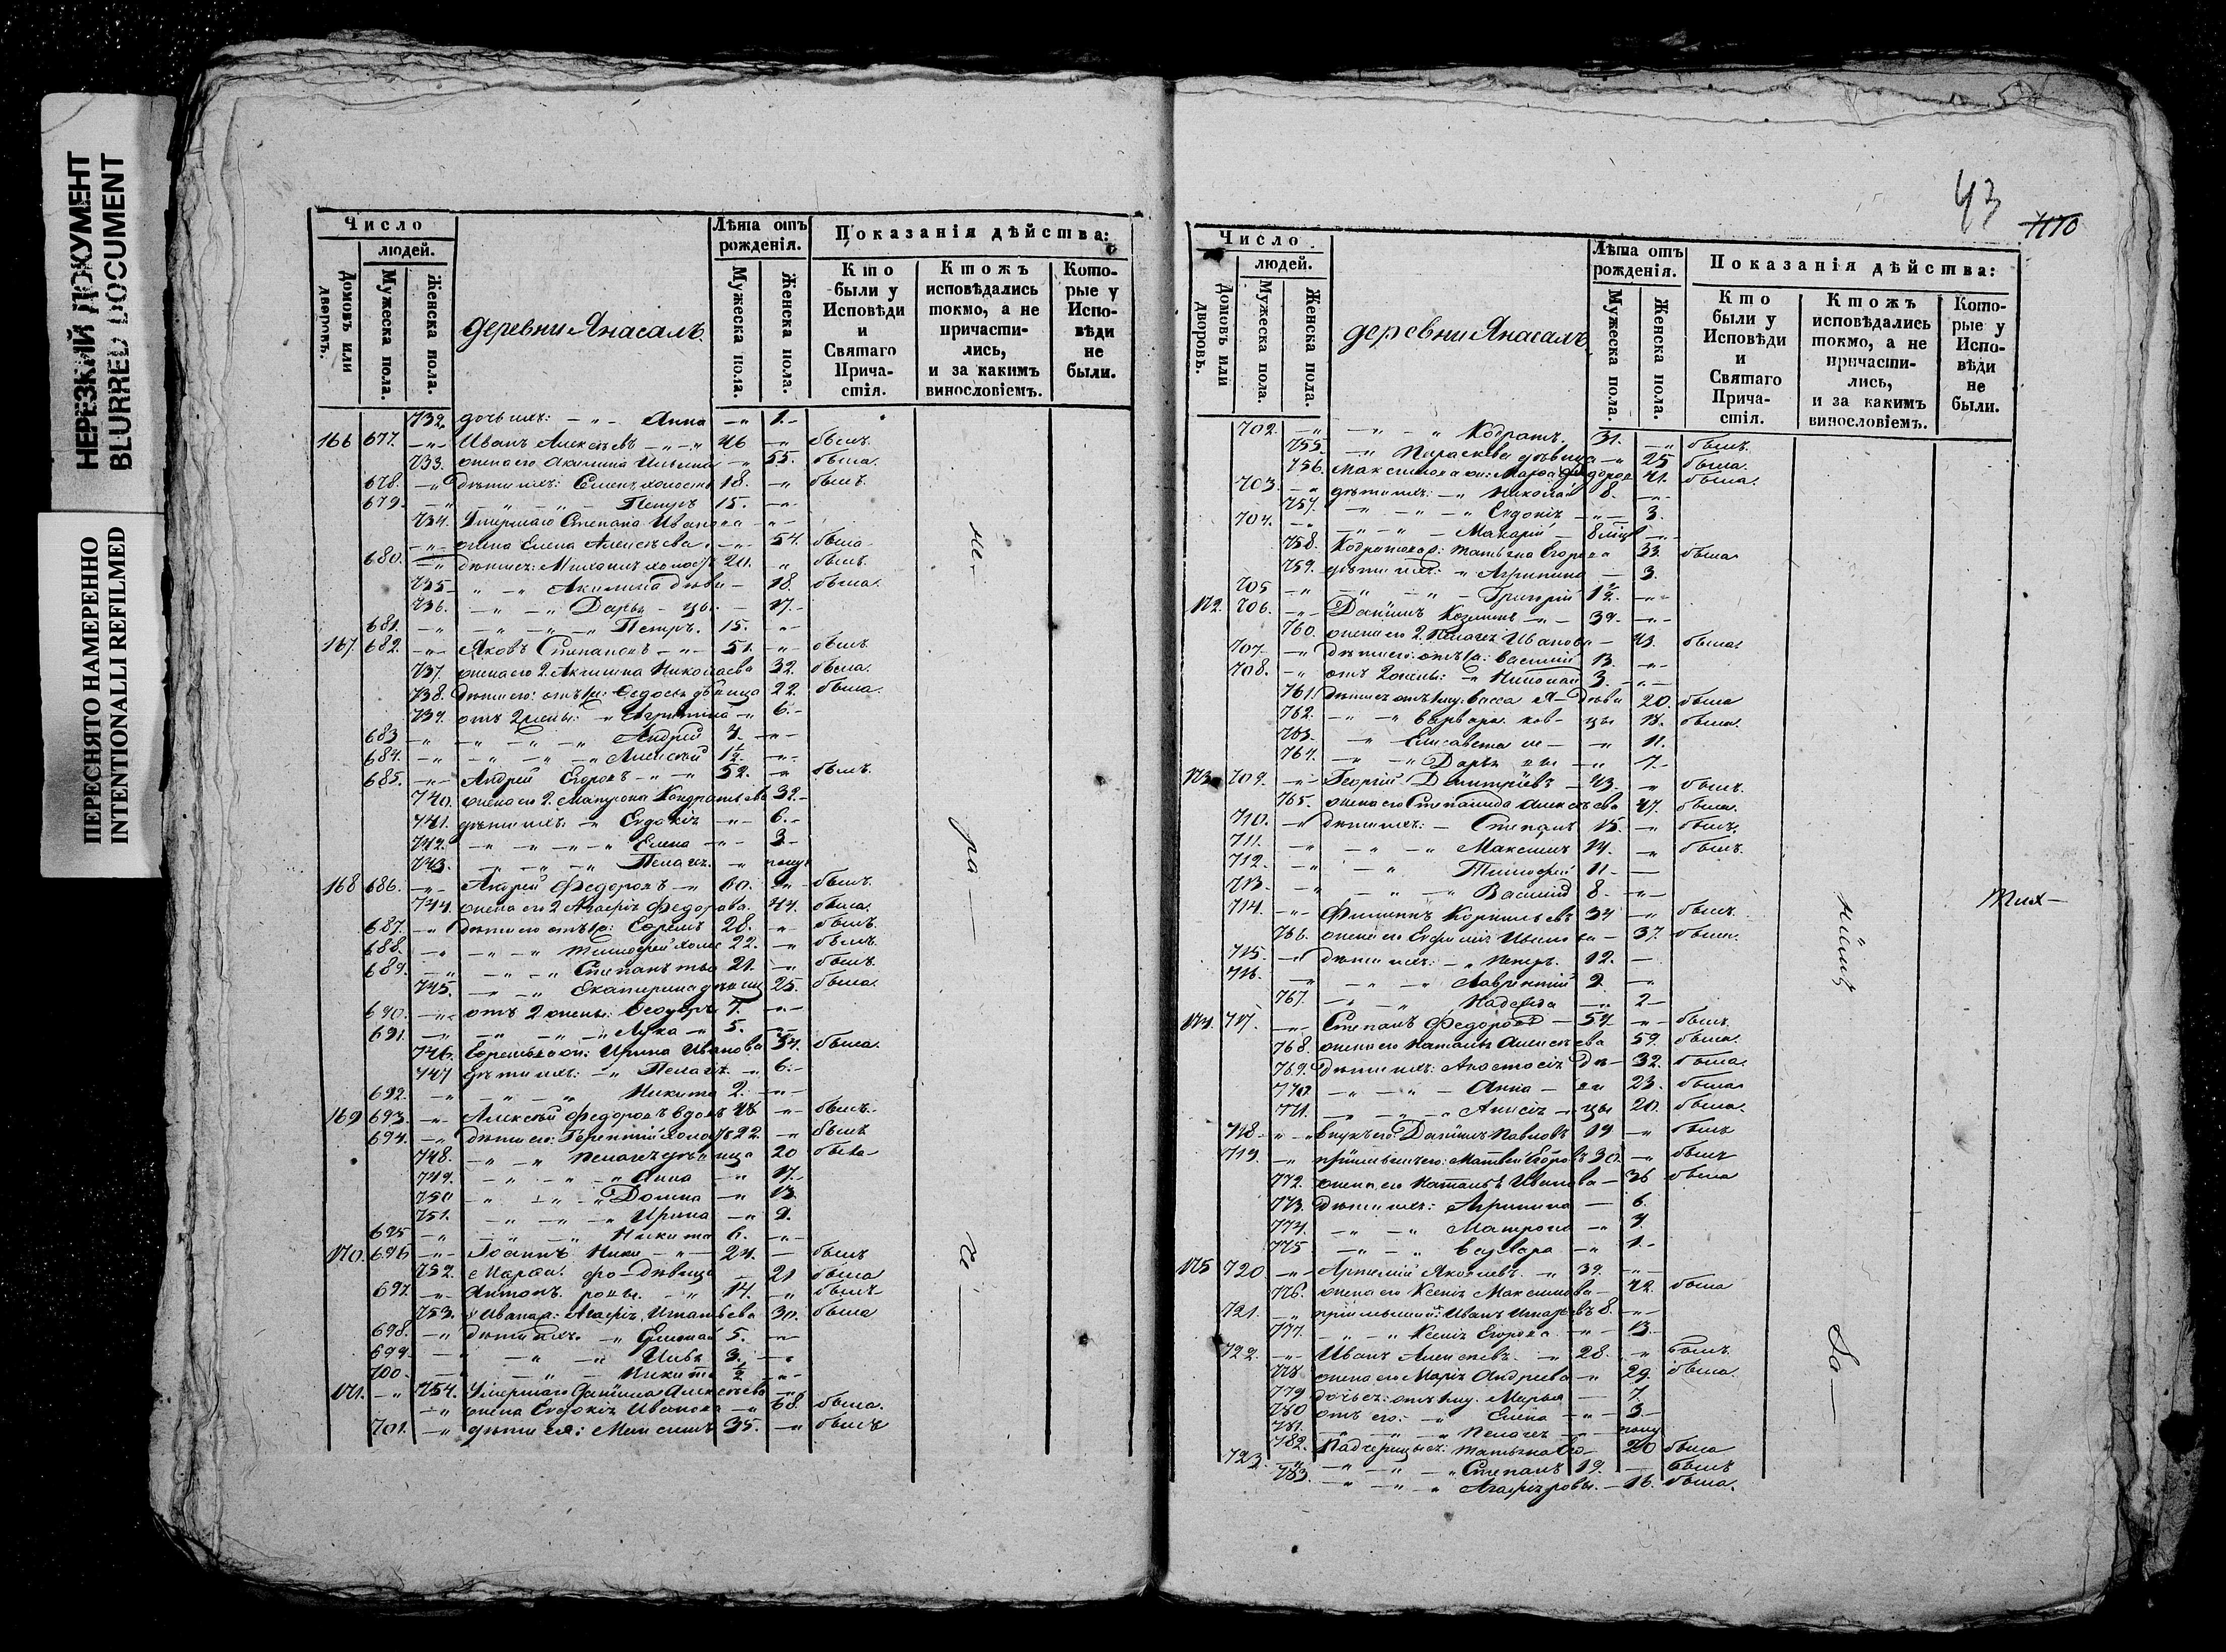 НЕРЕЗКИЙ ДОКУМЕНТ
BLURRED DOCUMENT
ПЕРЕСНЯТО НАМЕРЕННО
INTENTIONALLI REFILMED
Число
людей.
Домовъ или дворовъ.
Мужеска пола.
Женска пола.
деревни Янасалъ.
Лѣта отъ рожденія.
Мужеска пола.
Женска пола.
Показанія дѣйства:
Кто были у Исповѣди и Святаго Причастія.
Ктожъ исповѣдались токмо, а не причастились, и за какимъ винословіемъ.
Которые у Исповѣди не были.
732. дочь ихъ: Анна 1.
166 677. Иванъ Алексѣевъ 46 былъ.
733. жена его Акилина 55. была.
678. дѣти ихъ: Семенъ холостъ 18. былъ.
679. Петръ 15.
734. Умершаго Степана Иванова
жена Елена Алексѣева 54. была
680. дѣти ея: Михаилъ холостъ 20. былъ.
735 Акилина дѣви 18. была.
736. Дарья цы 17.
681. Петръ. 15.
167. 682. Яковъ Степановъ 51. былъ.
737. жена его 2. Акилина Николаева 32. была.
738. дѣти его: отъ 1й: Ѳедосья дѣвица 22. была.
739. отъ 2 жены: Агрипина 6.
683 Андрей 4.
684. Алексѣй 1½
685. Андрей Егоровъ 52. былъ.
740. жена его 2. Матрона Кондратьева 32.
741. дѣти ихъ: Евдокія 6.
742. Елена 3
743. Пелагея.
168 686. Андрей Федоровъ 60. былъ.
744. жена его 2 Агафія Федорова. 44. была.
687. дѣти его отъ 1й: Ефремъ 28. былъ.
688. Тимофей холос 22. былъ.
689. Степанъ тые 21. былъ.
745. Екатерина дѣвица 25. была.
690. отъ 2 жены: Ѳеодоръ 7.
691. Лука 5.
746. Ефремова ж: Ирина Иванова 34. была.
747 дѣти ихъ: Пелагея 6.
692. Никита 2.
169 693. Алексѣй Федоровъ вдовъ 48 былъ.
694. дѣти его: Терентій холостъ 22. былъ
748. Пелагея дѣвица 20 была
749. Анна 17.
750 Домна 13.
751. Ирина 9.
695 Никита 6.
170. 696 Іоаннъ Ники 24. былъ
752. Марѳа. фо дѣвица 21 была
697. Антонъ ровы. 14. былъ
753. Ивана ж: Агафія Игнатьева 30. была
698. дѣти ихъ: 5.
699. Илья 3.
700. Никита ½
171. 754. Умершаго Даніила Алексѣева
жена Евдокія Иванова 68. была.
701. дѣти ея: Максимъ 35. былъ
не
ра
зи
43
1170
Число
людей.
Домовъ или дворовъ.
Мужеска пола.
Женска пола.
деревни Янасалъ
Лѣта отъ рожденія.
Мужеска пола.
Женска пола.
Показанія дѣйства:
Кто были у Исповѣди и Святаго Причастія.
Ктожъ исповѣдались токмо, а не причастились, и за какимъ винословіемъ.
Которые у Исповѣди не были.
702. Кодратъ. 31. былъ.
755. Параскева дѣвица 25 была.
756. Максимова ж: Марѳа Федоров 41. была.
703. дѣти ихъ: Николай 8.
757. Евдокія 3.
704. Макарій 8 мѣц
758. Кодратова ж: Татьяна Егорова 33. была
759. дѣти ихъ: Агрипина 3.
705 Григорій 1½
172. 706. Даніилъ Козминъ 39.
760. жена его 2. Пелагея Иванова 43. была.
707. дѣти его: отъ 1й: Василій 13.
708. отъ 2 жены: Николай 3.
761. Васса Дѣви 20. была
762. Варвара цы 18. была.
763. Елисавета 11.
764. Дарья 7.
173 709. Георгій Димитріевъ 43. былъ.
765. жена его Степанида Алексѣева 47. была.
710. дѣти ихъ: Степанъ 15. былъ.
711. Максимъ 14. былъ.
712. Тимофей 11
713. Василій 8
714. Филиппъ Корнильевъ 34 былъ.
766. жена его Евфимія Иванова 37. была.
715. дѣти ихъ: Петръ. 12.
716. Лаврентій 2
767. Надежда 2
174. 717. Степанъ Федоровъ 57 былъ.
768. жена его Наталья Алексѣева 59. была.
769. дѣти ихъ: Анастасія Дѣ 32. была.
770. Анна ви 23. была
771. Анисія цы 20. была.
718. внукъ его Даніилъ Павловъ 19 былъ
719. пріимышъ его: Матвей Егоровъ 30. былъ
772. жена его Наталья Иванова 36 была
773. дѣти ихъ: Агрипина 6.
774. Матрона 4.
775 Варвара 1.
175 720 Артемій Яковлевъ. 39.
776. жена его Ксенія Максимова 42. была
721. Иванъ 8.
777. Ксенія Егорова. 13.
722. Иванъ Алексѣевъ 28. былъ
778 жена его Марія Андреева 29. была.
779 Марья 7.
780 Елена 3.
781. Пелагея
782. Падчерицы ея: Татьяна 20 была
723. Степанъ 19. былъ
783. Агафія ровы. 16. была.
нѣтъ
За
Тих